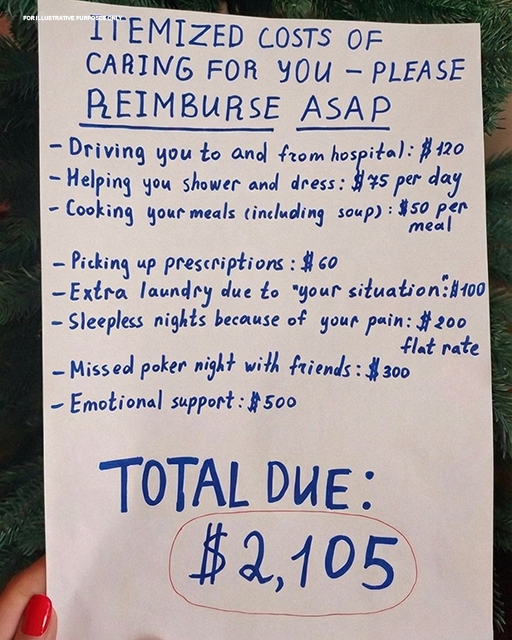 FOR ILLUSTRATIVE PURPOSES ONLY
ITEMIZED COSTS OF
CARING FOR YOU – PLEASE
REIMBURSE ASAP
- Driving you to and from hospital: $120
- Helping you shower and dress: $75 per day
- Cooking your meals (including soup): $50 per
meal
- Picking up prescriptions: $60
- Extra laundry due to "your situation": $100
- Sleepless nights because of your pain: $200
flat rate
- Missed poker night with friends: $300
- Emotional support: $500
TOTAL DUE:
$2,105